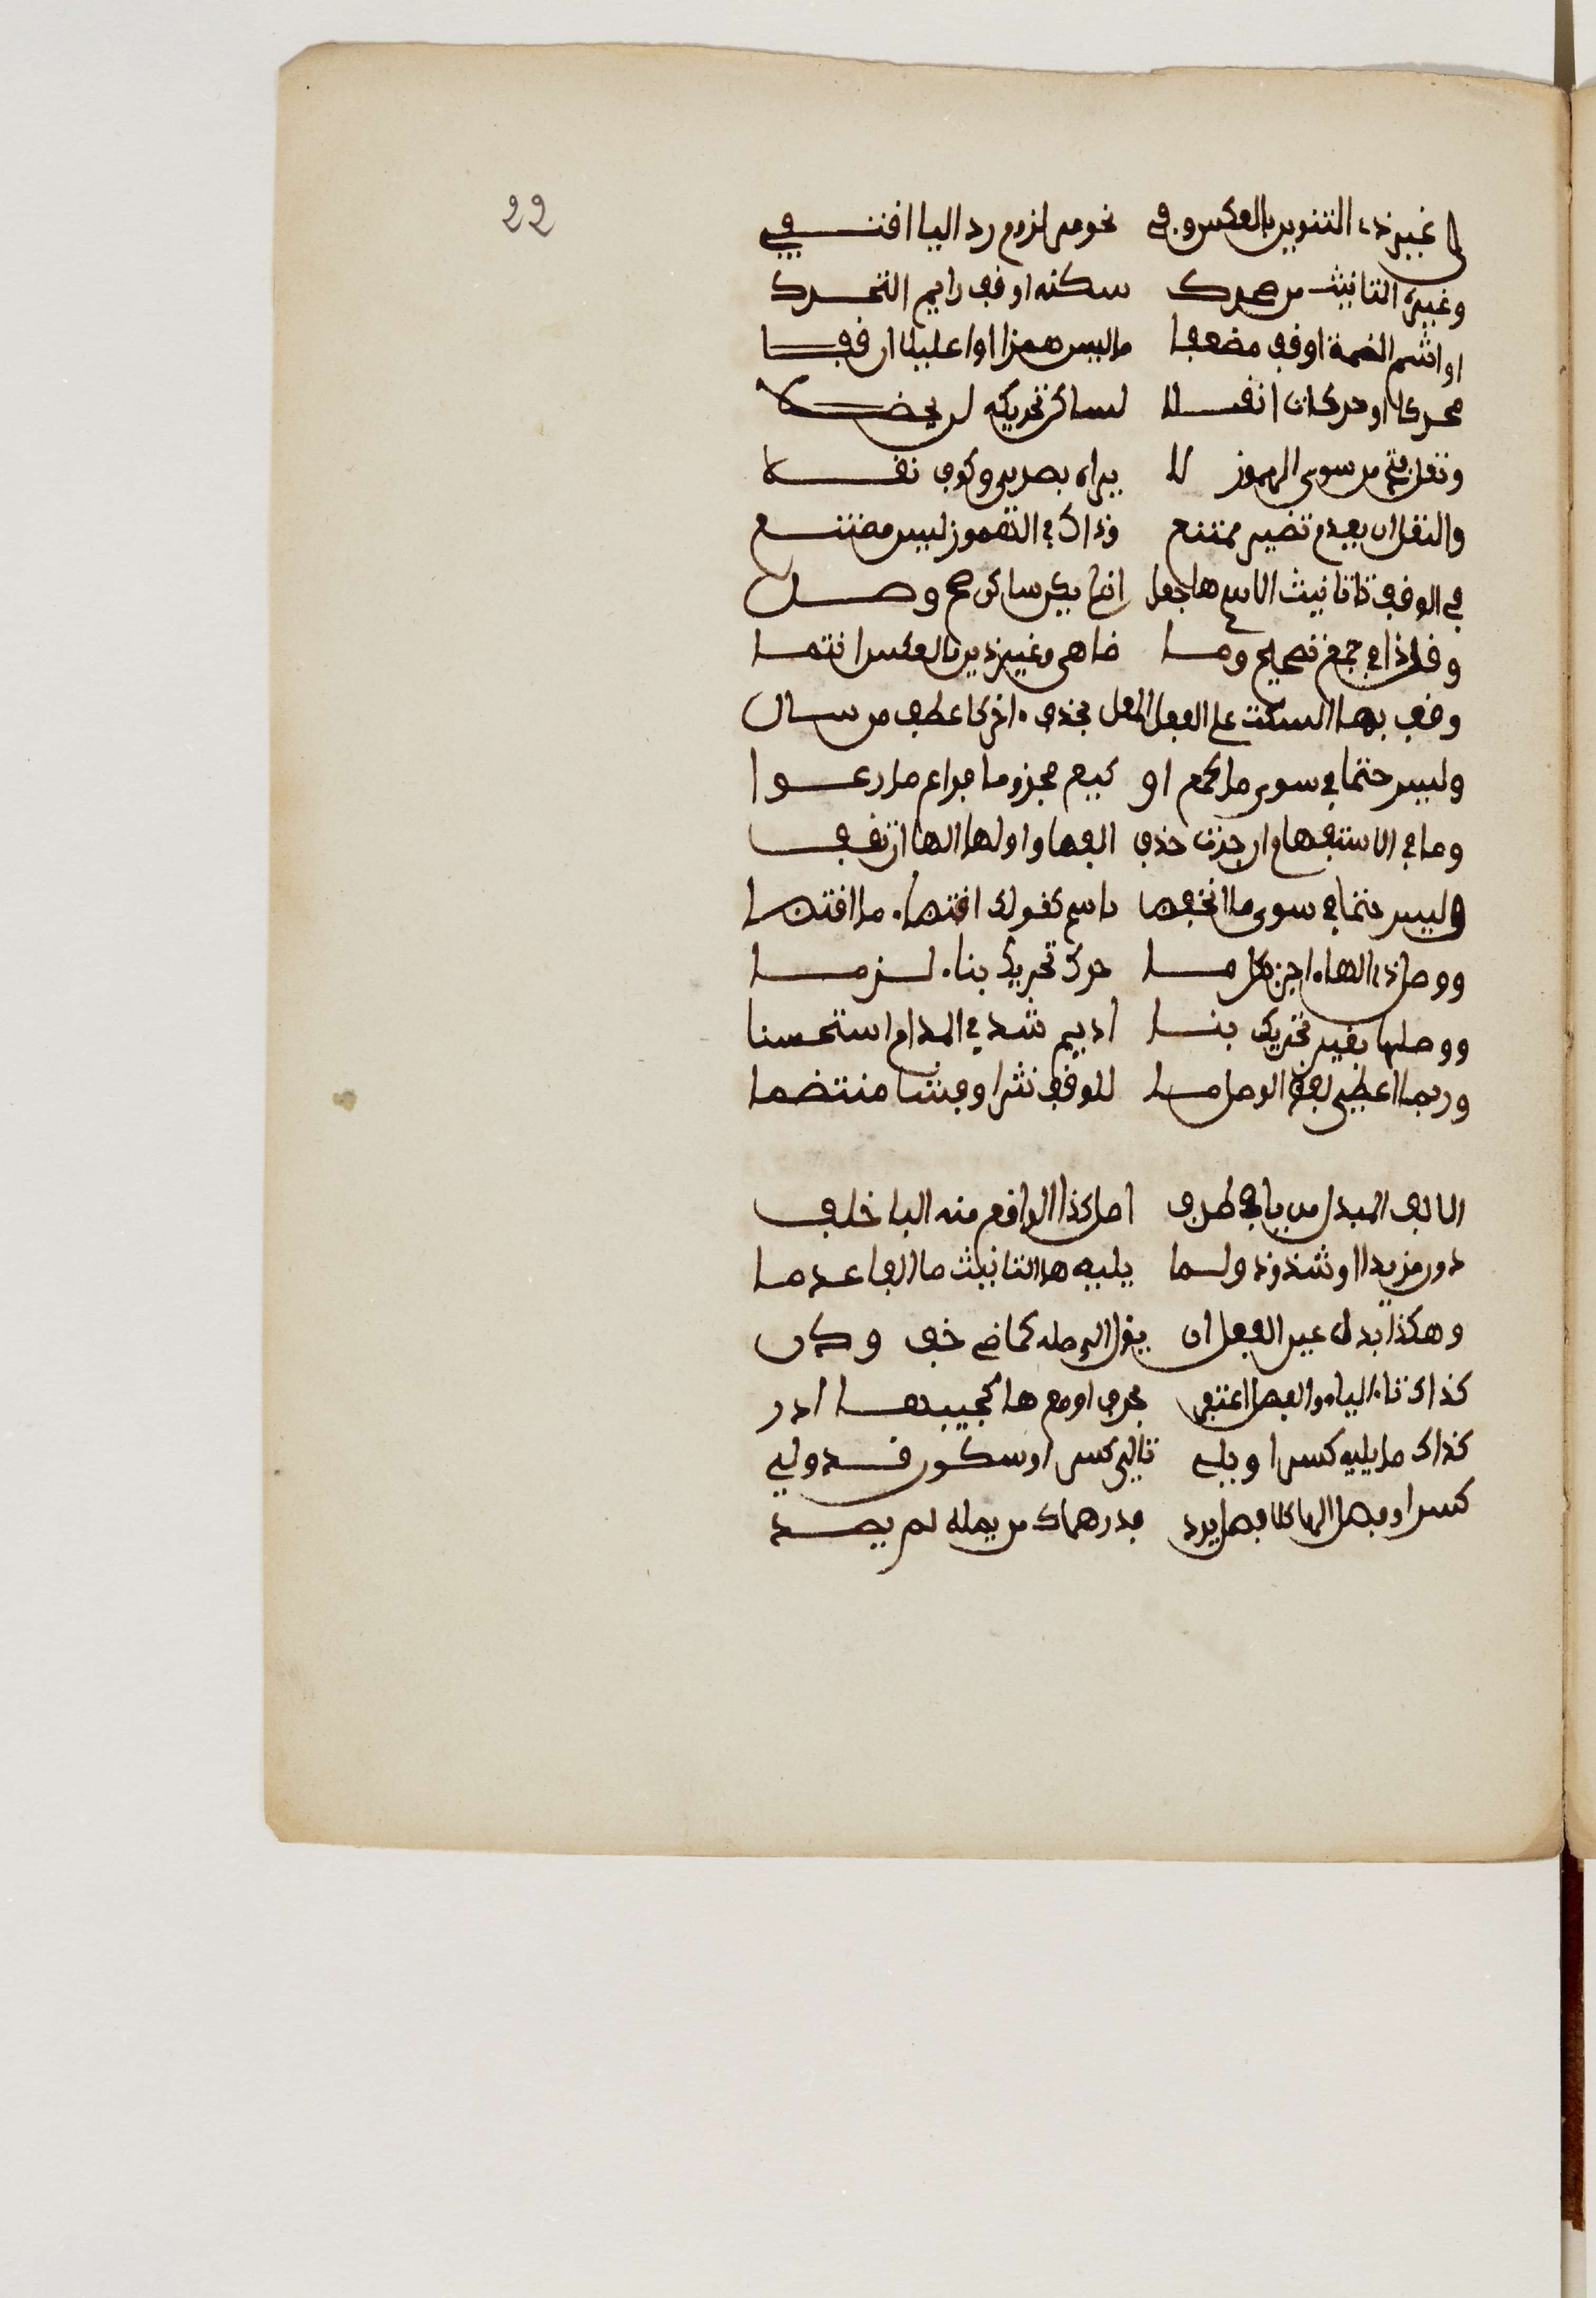 22
غير ذي التنوين بالعكس وفي نحو مر لزوم رد اليا اقتفي
وغيرها التانيث من محرك سكنه او قف رايم التحرك
او اشمم الضمة او قف مضعفا ما ليس همزا او عليلا ان قفا
محركا او حركات انقلا لساكن تحريكه لن يحضلا
ونقل فتح من سوى المهموز لا يراه بصري وكوف نقلا
والنقل ان يعدم نضير ممتنع وذاك في المهموز ليس ممتنع
في الوقف تا تانيث الاسم ها جعل ان لم يكن بساكن صح وصل
وقل ذا في جمع تصحيح وما ضاهى وغير ذين بالعكس انتما
وقف بها السكت على الفعل المعل بحذف اخر كاعط من سال
وليس حتما في سوى ما كع او كيع مجزوما فراع ما رعوا
وما في الاستفهام ان جرت حذف الفها واولها الها ان تقف
وليس حتما في سوى ما انخفضا باسم كقولك اقتضاء ما اقتضا
ووصل ذي الهاء اجز بكل ما حرك تحريك بناء لزما
ووصلها بغير تحريك بنا اديم شذ في المدام استحسنا
وربما اعطي لفظ الوصل ما للوقف نثرا وفشا منتضما
الالف المبدل من يا في طرف امل كذا الواقع منه اليا خلف
دون مزيد او شذوذ ولما يليه ها التانيث ما الها عدما
وهكذا بدل عين الفعل ان يؤل الى فلت كماض خف ودن
كذاك تالي الياء والفصل اغتفر بحرف او مع ها كجيبها ادر
كذاك ما يليه كسر او يلي تالي كسر او سكون قد ولي
كسرا وفصل الها كلا فصل يعد فدرهماك من يمله لم يصد